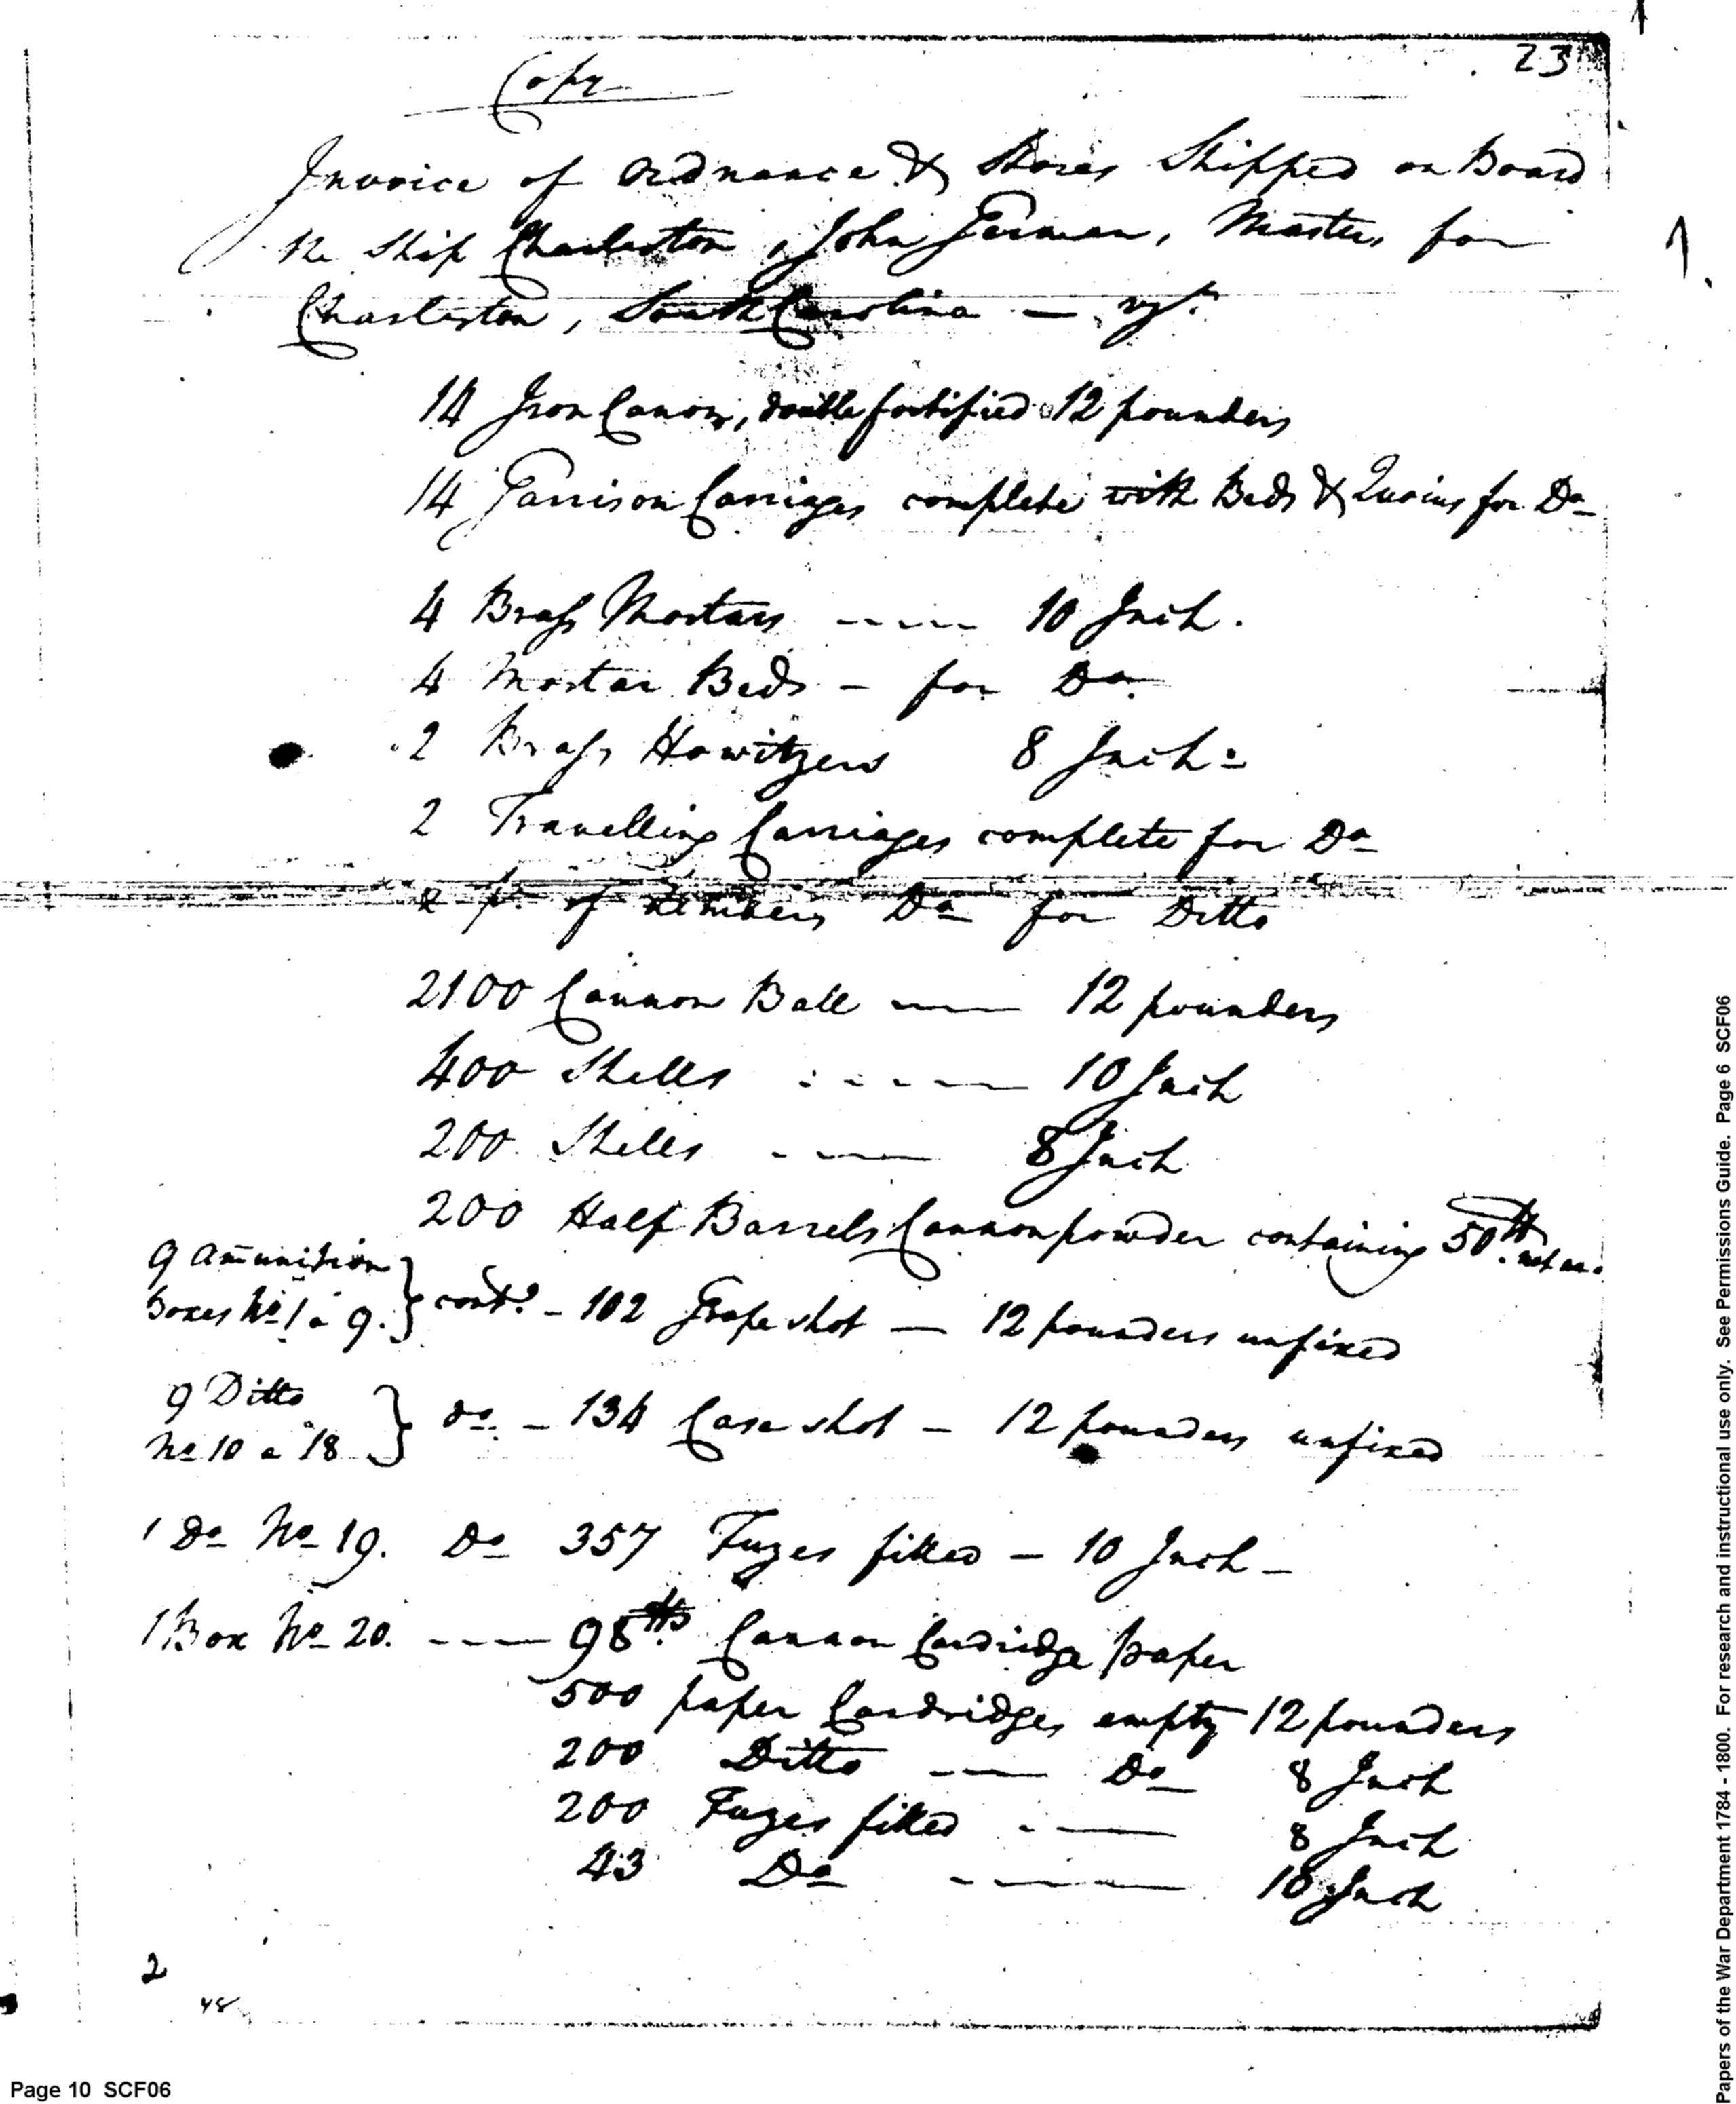 23
Copy
Invoice of Ordnance & Stores Shipped on Board
the Ship Charleston, John Jerman, Master, for
Charleston, South Carolina — vizt.
14 Iron Canon, double fortified 12 pounders
14 Garrison Carriages complete with Beds & Quoins for Do
4 Brass Mortars ---- 10 Inch.
4 Mortar Beds - for Do.
2 Brass Howitzers 8 Inch
2 Travelling Carriages complete for Do
2 pr. of Limbers Do for Ditto
2100 Cannon Ball — 12 pounders
400 Shells ---- 10 Inch
200 Shells ---- 8 Inch
200 Half Barrels Cannon powder containing 50 lb. net ea.
9 Amunition
Boxes No 1 a 9. } contg. - 102 Grape shot — 12 pounders unfixed
9 Ditto
No 10 a 18 } do. - 134 Case shot — 12 pounders unfixed
1 Do No 19. Do 357 Fuzes filled — 10 Inch —
1 Box No 20. ---- 98 lbs. Cannon Cardridge paper
500 paper Cardridges empty 12 pounders
200 Ditto ---- Do 8 Inch
200 Fuzes filled ---- 8 Inch
43 Do ---- 10 Inch
2
48
Page 10 SCF06
Papers of the War Department 1784 - 1800. For research and instructional use only. See Permissions Guide. Page 6 SCF06